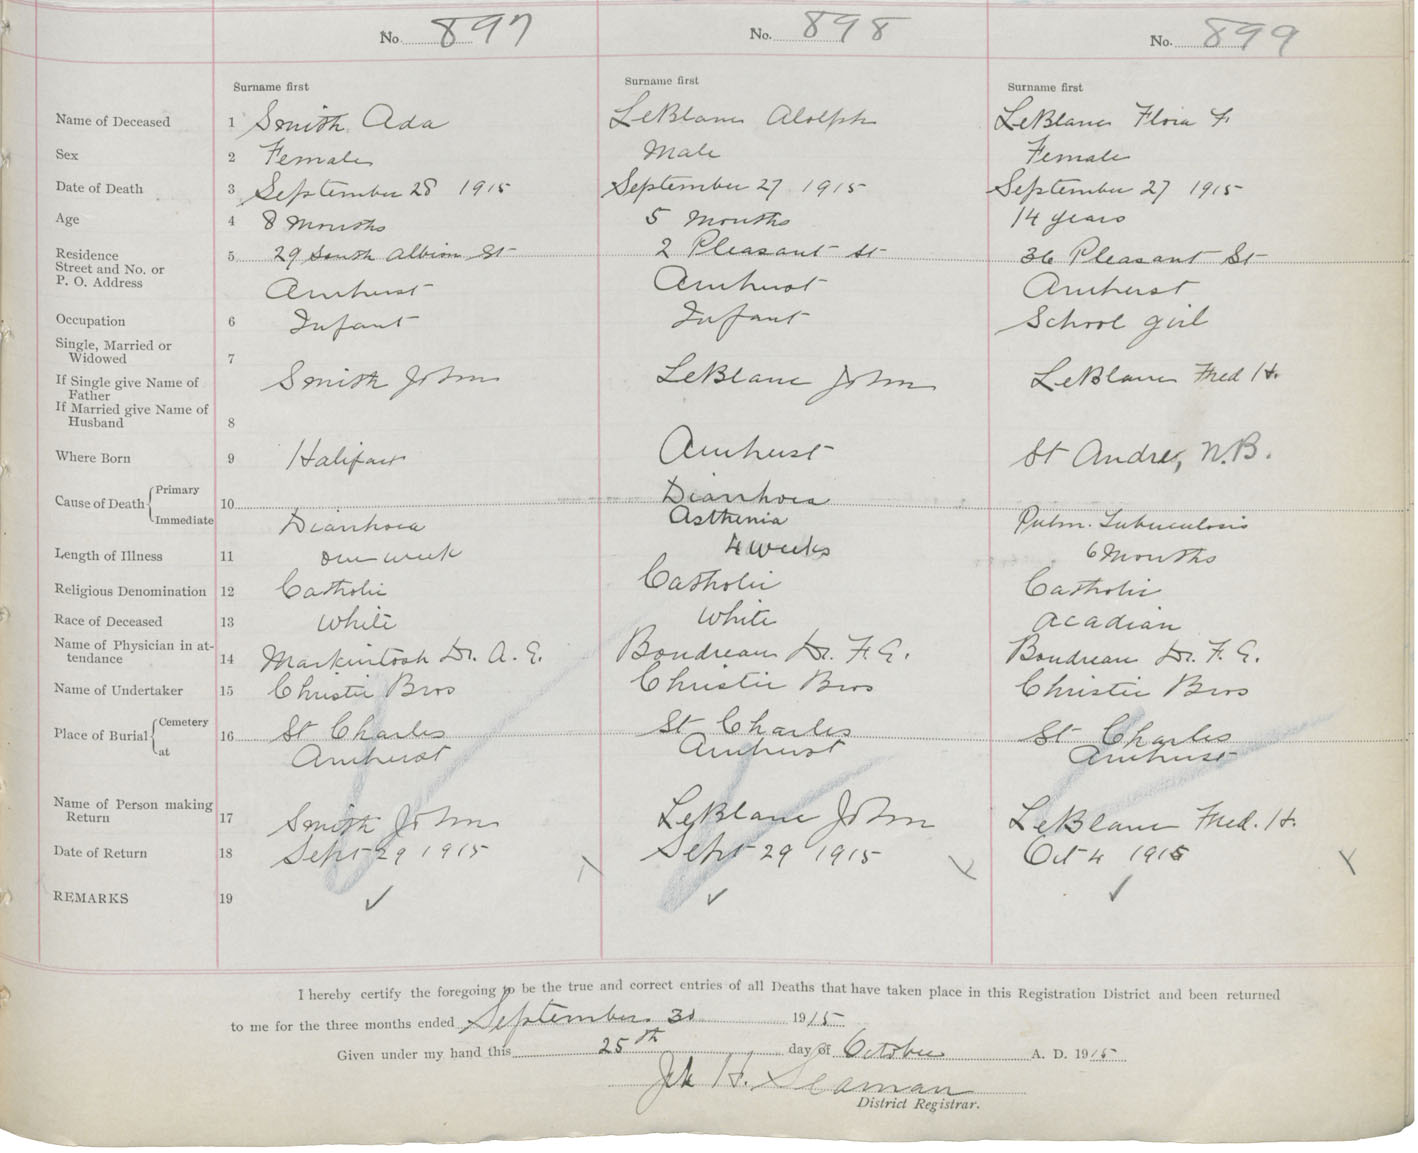 No. 897 No. 898 No. 899
Surname first Surname first Surname first
Name of Deceased 1 Smith Ada LeBlanc Alolph LeBlanc Flora F.
Sex 2 Female Male Female
Date of Death 3 September 28 1915 September 27 1915 September 27 1915
Age 4 8 Months 5 Months 14 years
Residence 5 29 South Albion St 2 Pleasant St 36 Pleasant St
Street and No. or
P. O. Address Amherst Amherst Amherst
Occupation 6 Infant Infant School girl
Single, Married or
Widowed 7
If Single give Name of Smith John LeBlanc John LeBlanc Fred H.
Father
If Married give Name of
Husband 8
Where Born 9 Halifax Amherst St Andre, N.B.
Cause of Death Primary 10 Diarrhoea
Immediate Diarrhoea Asthenia Pulm. Tuberculosis
Length of Illness 11 one week 4 weeks 6 Months
Religious Denomination 12 Catholic Catholic Catholic
Race of Deceased 13 White White Acadian
Name of Physician in at-
tendance 14 Mackintosh Dr. A. E. Boudreau Dr. F. E. Boudreau Dr. F. E.
Name of Undertaker 15 Christie Bros Christie Bros Christie Bros
Place of Burial Cemetery 16 St Charles St Charles St Charles
at Amherst Amherst Amherst
Name of Person making
Return 17 Smith John LeBlanc John LeBlanc Fred. H.
Date of Return 18 Sept 29 1915 Sept 29 1915 Oct 4 1915
REMARKS 19 ✓ ✓ ✓
I hereby certify the foregoing to be the true and correct entries of all Deaths that have taken place in this Registration District and been returned
to me for the three months ended September 30 1915
Given under my hand this 25th day of October A. D. 1915
H. Seaman
District Registrar.